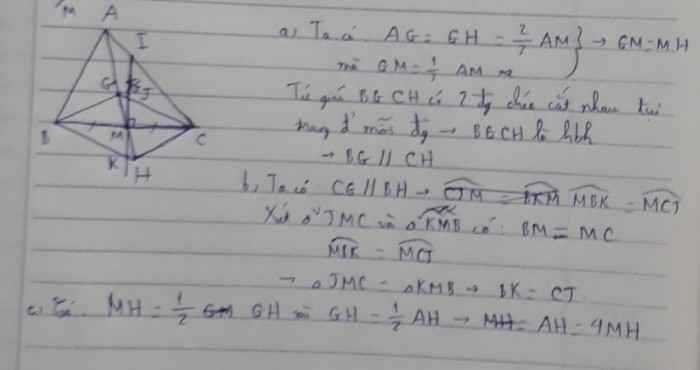 M
A
I
G
J
B
M
C
K
H
a, Ta có AG = GH = 2/3 AM } → GM = MH
mà GM = 1/3 AM
Tứ giác BGCH có 2 đg chéo cắt nhau tại
trung đ' mỗi đg → BGCH là hbh
→ BG // CH
b, Ta có CG // BH → CJM = BKM MBK = MCJ
Xét Δ JMC và Δ KMB có: BM = MC
MBK = MCJ
→ Δ JMC = Δ KMB → BK = CJ
c, MH = 1/2 GM GH mà GH = 1/2 AH → MH = AH = 4MH